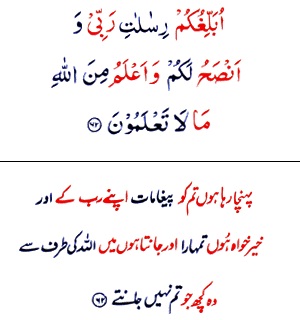 اُبَلِّغُكُمۡ رِسٰلٰتِ رَبِّىۡ وَ
اَنۡصَحُ لَكُمۡ وَاَعۡلَمُ مِنَ اللّٰهِ
مَا لَا تَعۡلَمُوۡنَ ﴿۶۲﴾
پہنچا رہا ہوں تم کو پیغامات اپنے رب کے اور
خیر خواہ ہُوں تمہارا اور جانتا ہوں میں اللہ کی طرف سے
وہ کچھ جو تم نہیں جانتے ﴿۶۲﴾